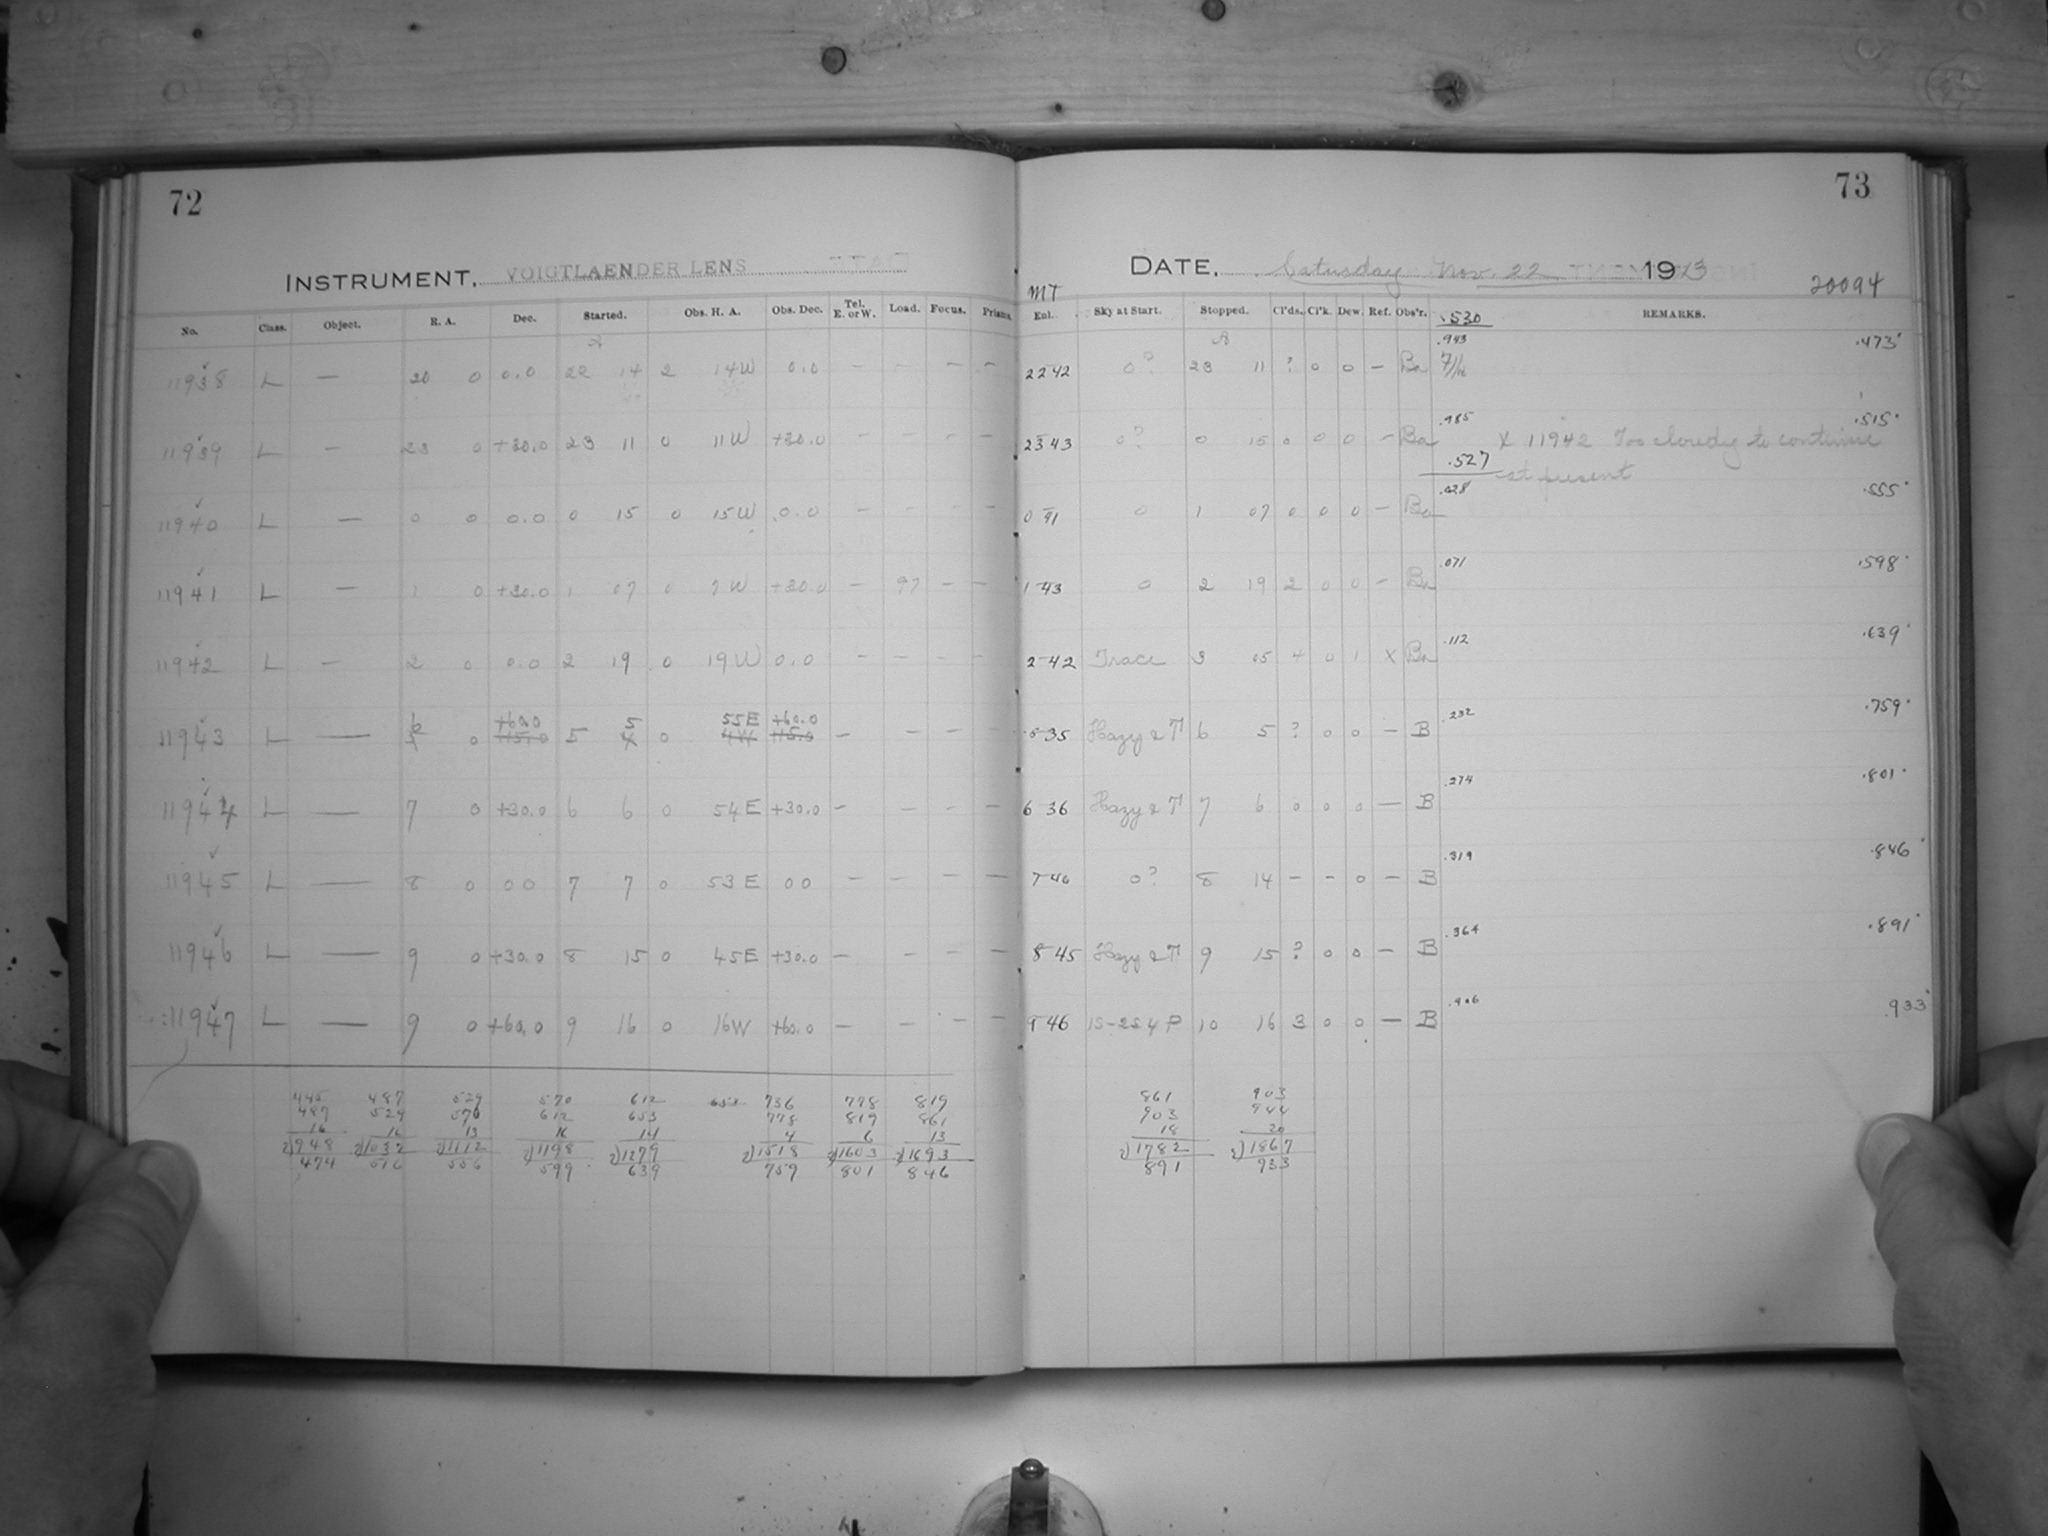 72
INSTRUMENT, VOIGTLAENDER LENS
No. Class. Object. R. A. Dec. Started. Obs. H. A. Obs. Dec. Tel. E. or W. Load. Focus. Prisms.
11938 L — 20 0 0.0 22 14 2 14W 0.0 — — —
11939 L — 23 0 +30.0 23 11 0 11W +30.0 — — — —
11940 L — 0 0 0.0 0 15 0 15W 0.0 — — — —
11941 L — 1 0 +30.0 1 07 0 7W +30.0 — 97 — —
11942 L — 2 0 0.0 2 19 0 19W 0.0 — — — —
11943 L — 6 0 +60.0 5 5 0 55E +60.0 — — — —
11944 L — 7 0 +30.0 6 6 0 54E +30.0 — — — —
11945 L — 8 0 00 7 7 0 53E 00 — — — —
11946 L — 9 0 +30.0 8 15 0 45E +30.0 — — — —
11947 L — 9 0 +60.0 9 16 0 16W +60.0 — — — —
445 487 529 570 612 653 736 778 819
487 529 570 612 653 778 819 861
16 16 13 16 14 4 6 13
2)948 2)1032 2)1112 2)1198 2)1279 2)1518 2)1603 2)1693
474 516 556 599 639 759 801 846
73
DATE, Saturday Nov. 22 1913
20094
MT
Enl. Sky at Start. Stopped. Cl'ds. Cl'k. Dew. Ref. Obs'r. .530 REMARKS.
.943 .473
22 42 0? 23 11 ? 0 0 — Ba
.985 .515
23 43 0? 0 15 0 0 0 — Ba X 11942 Too cloudy to continue
.527 at present
.028 .555
0 41 0 1 07 0 0 0 — Ba
.071 .598
1 43 0 2 19 2 0 0 — Ba
.112 .639
2 42 Trace 3 05 4 0 1 X Ba
.232 .759
5 35 Hazy & T 6 5 ? 0 0 — B
.274 .801
6 36 Hazy & T 7 6 0 0 0 — B
.319 .846
7 40 0? 8 14 — — 0 — B
.364 .891
8 45 Hazy & T 9 15 ? 0 0 — B
.406 .933
9 46 1S-2S4P 10 16 3 0 0 — B
861 903
903 944
18 20
2)1782 2)1867
891 933